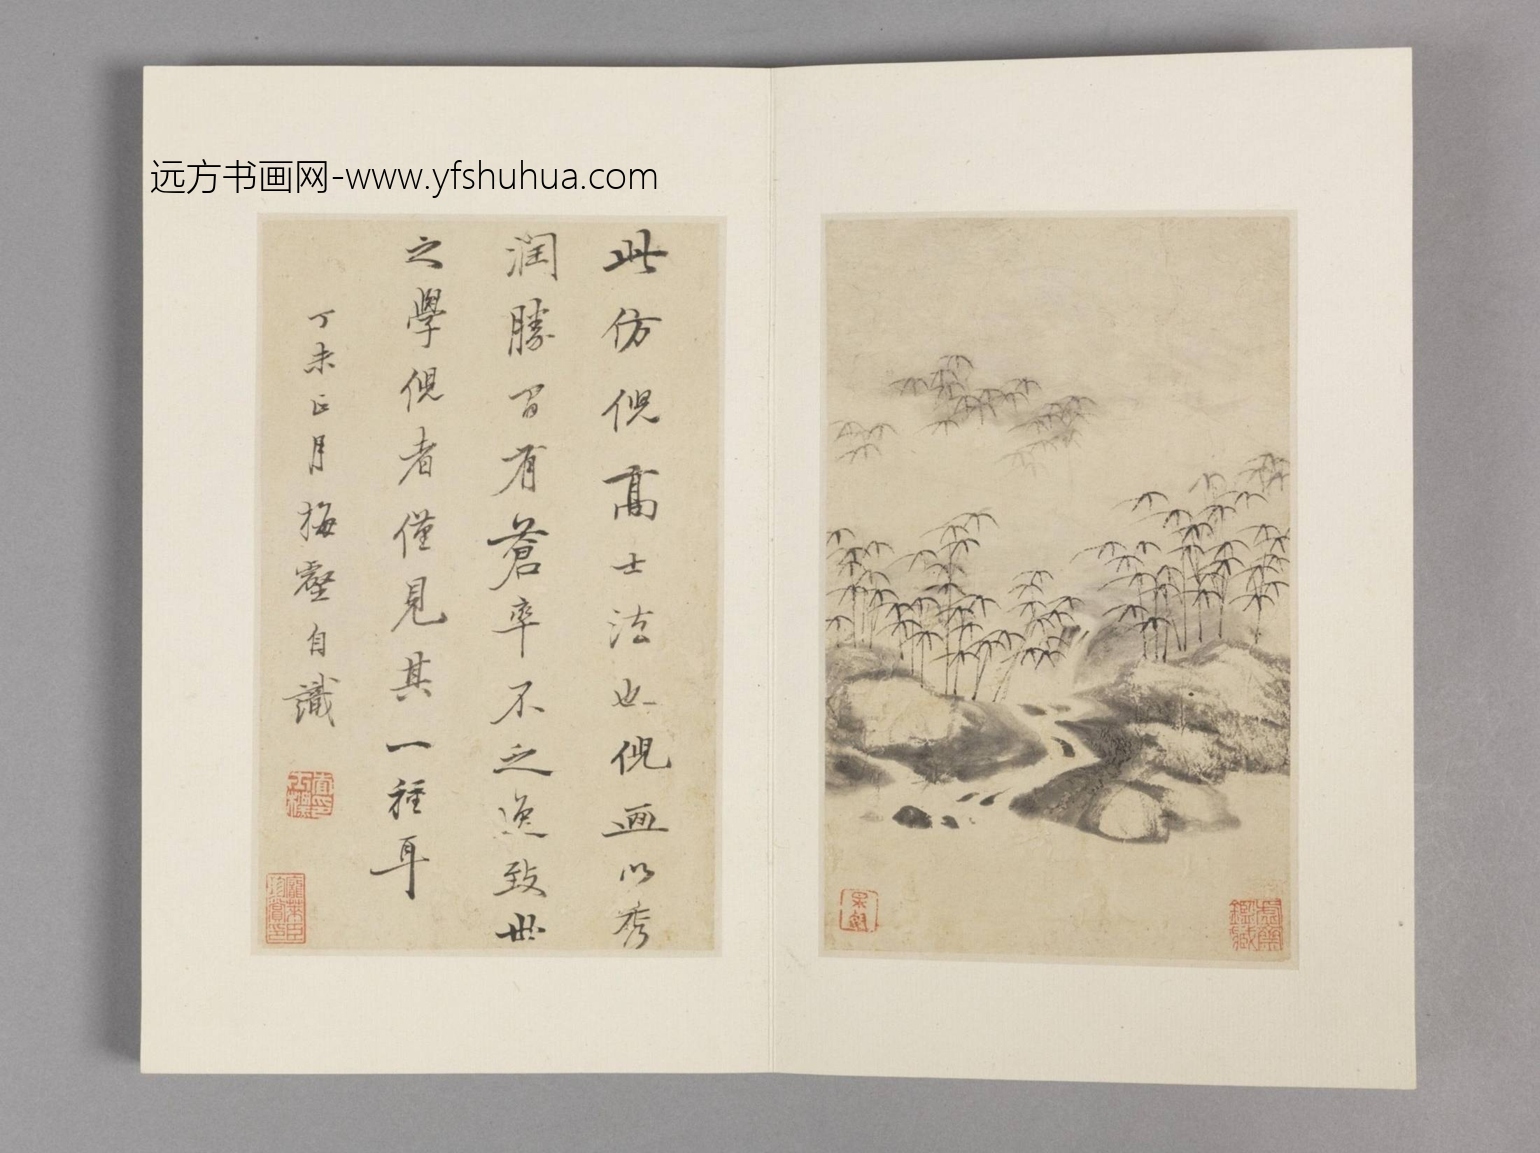 远方书画网-www.yfshuhua.com
此仿倪高士法也倪画以秀
润勝间有蒼率不乏逸致世
之學倪者僅見其一種耳
丁未正月梅壑自識